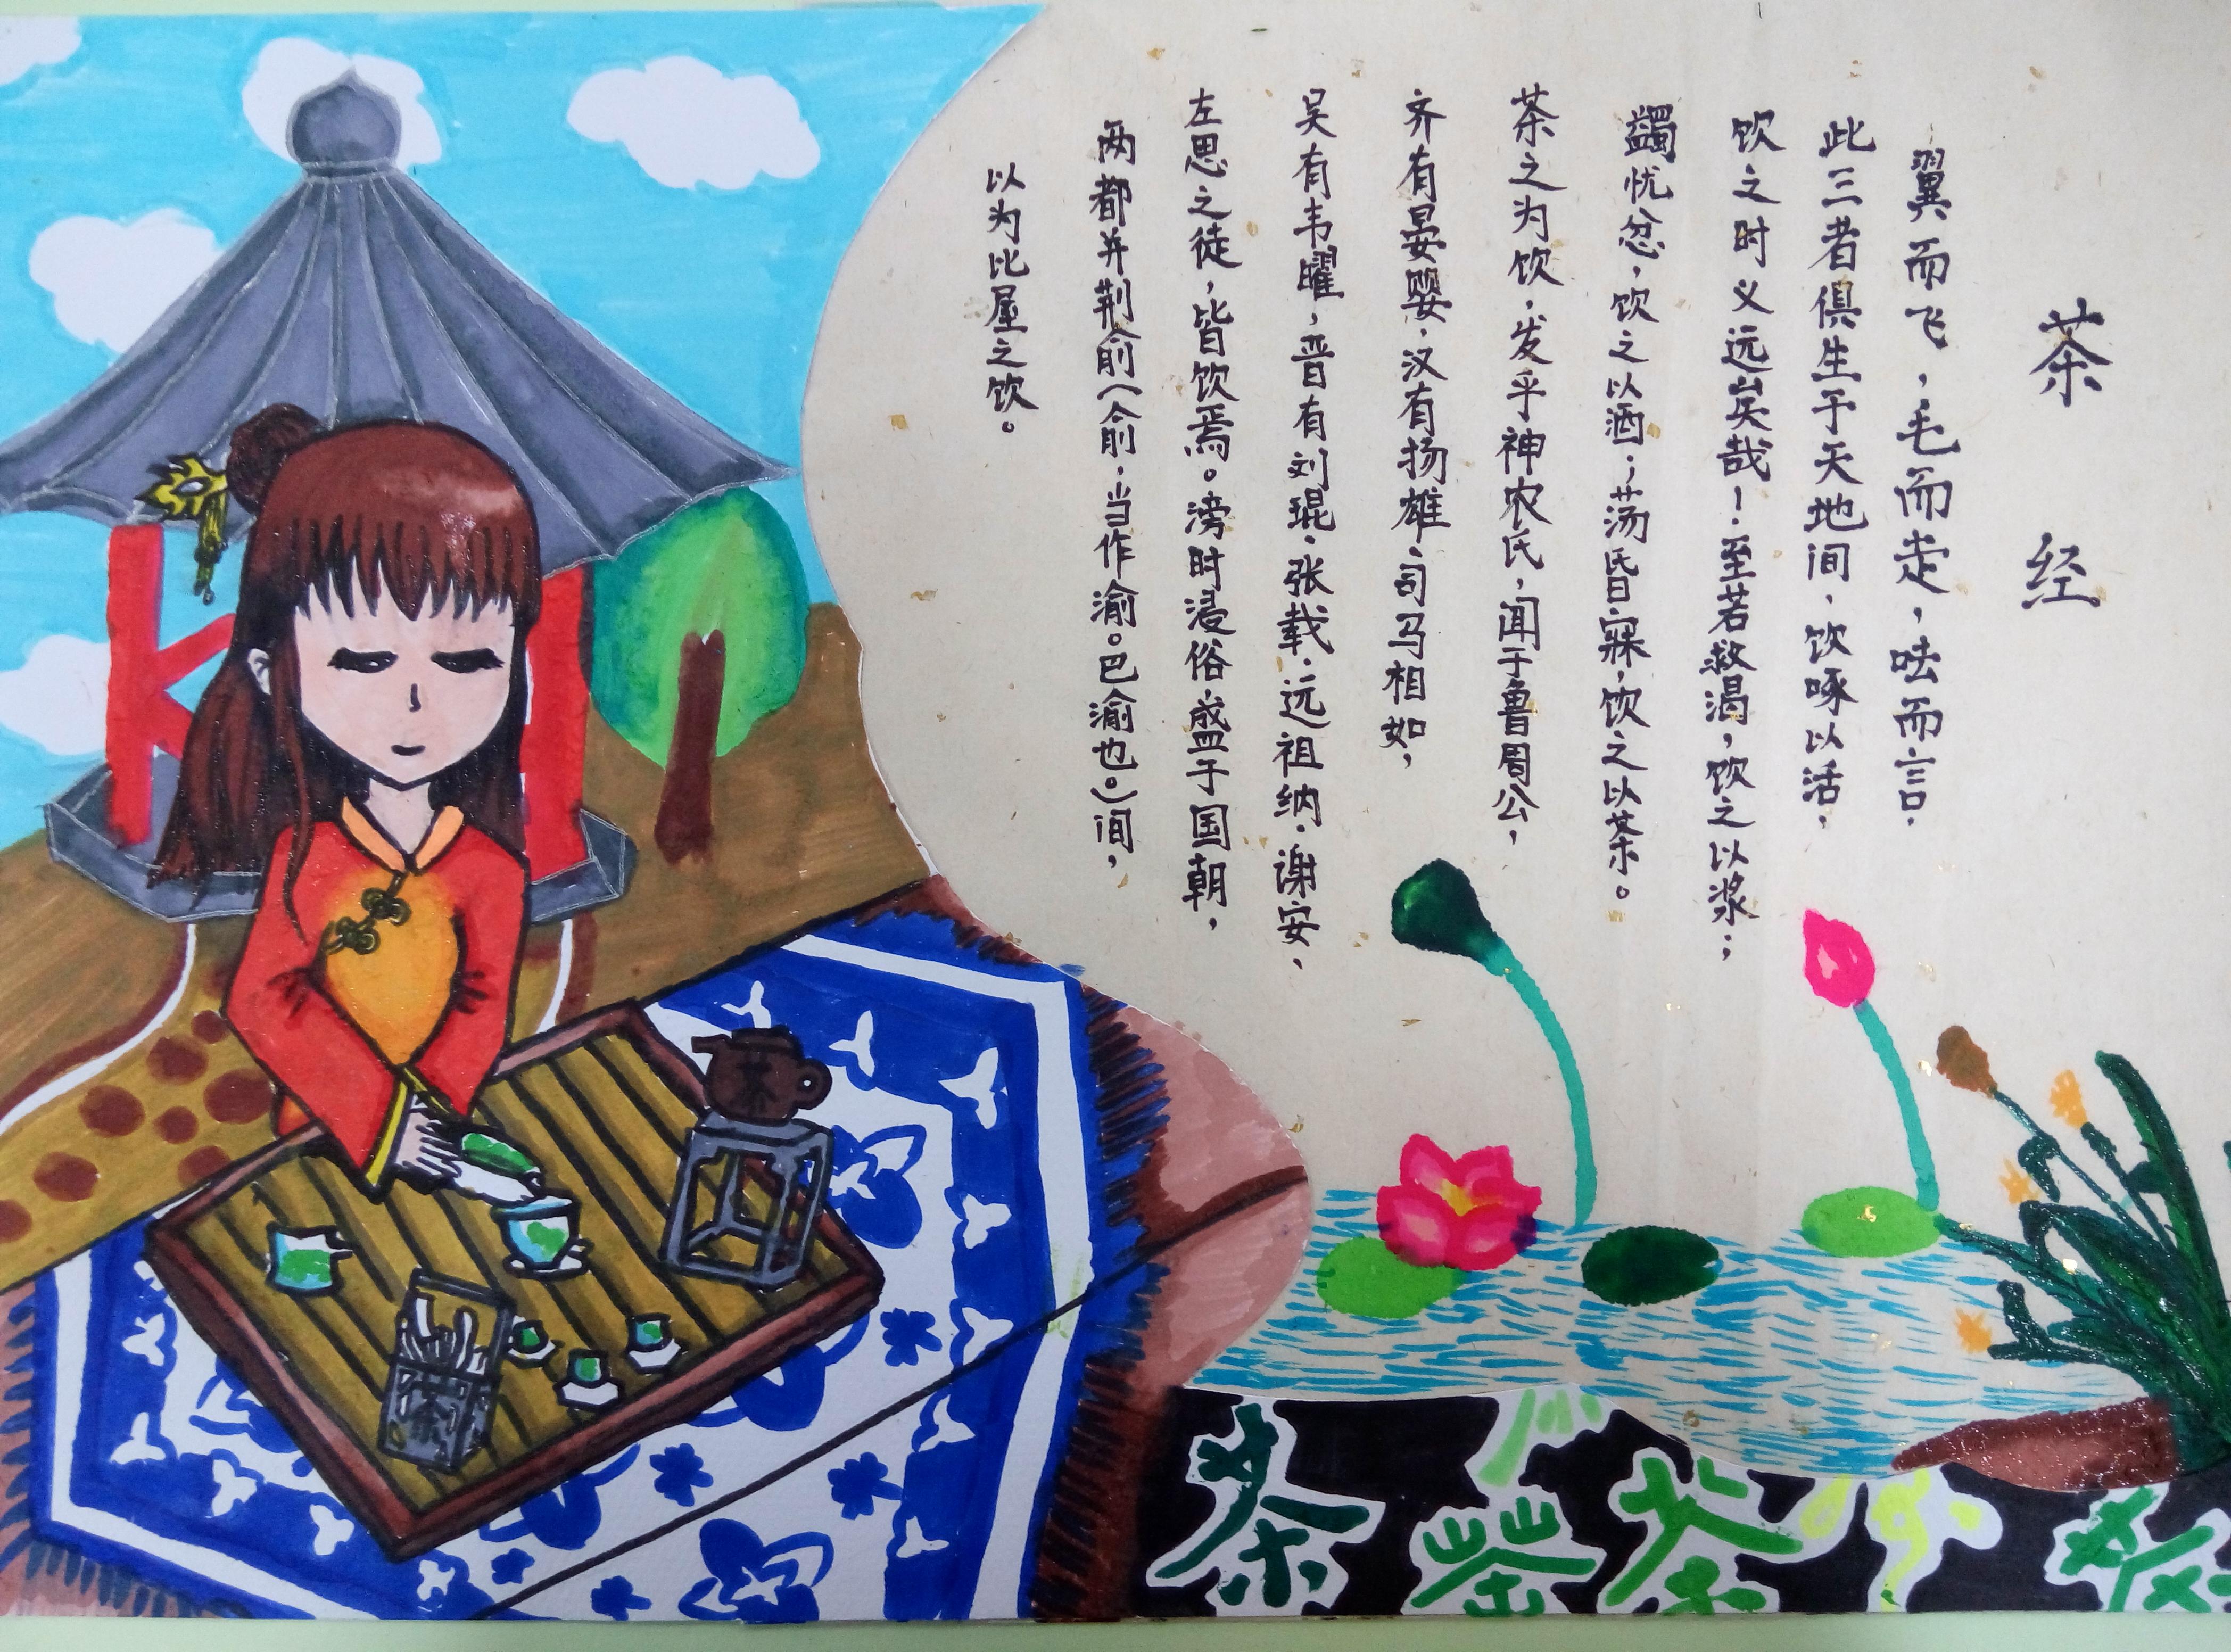 茶经
翼而飞，毛而走，呿而言，
此三者俱生于天地间，饮啄以活，
饮之时义远矣哉！至若救渴，饮之以浆；
蠲忧忿，饮之以酒；荡昏寐，饮之以茶。
茶之为饮，发乎神农氏，闻于鲁周公，
齐有晏婴，汉有扬雄、司马相如，
吴有韦曜，晋有刘琨、张载、远祖纳、谢安、
左思之徒，皆饮焉。滂时浸俗，盛于国朝，
两都并荆俞（俞，当作渝。巴渝也。）间，
以为比屋之饮。
茶
茶
茶 茶